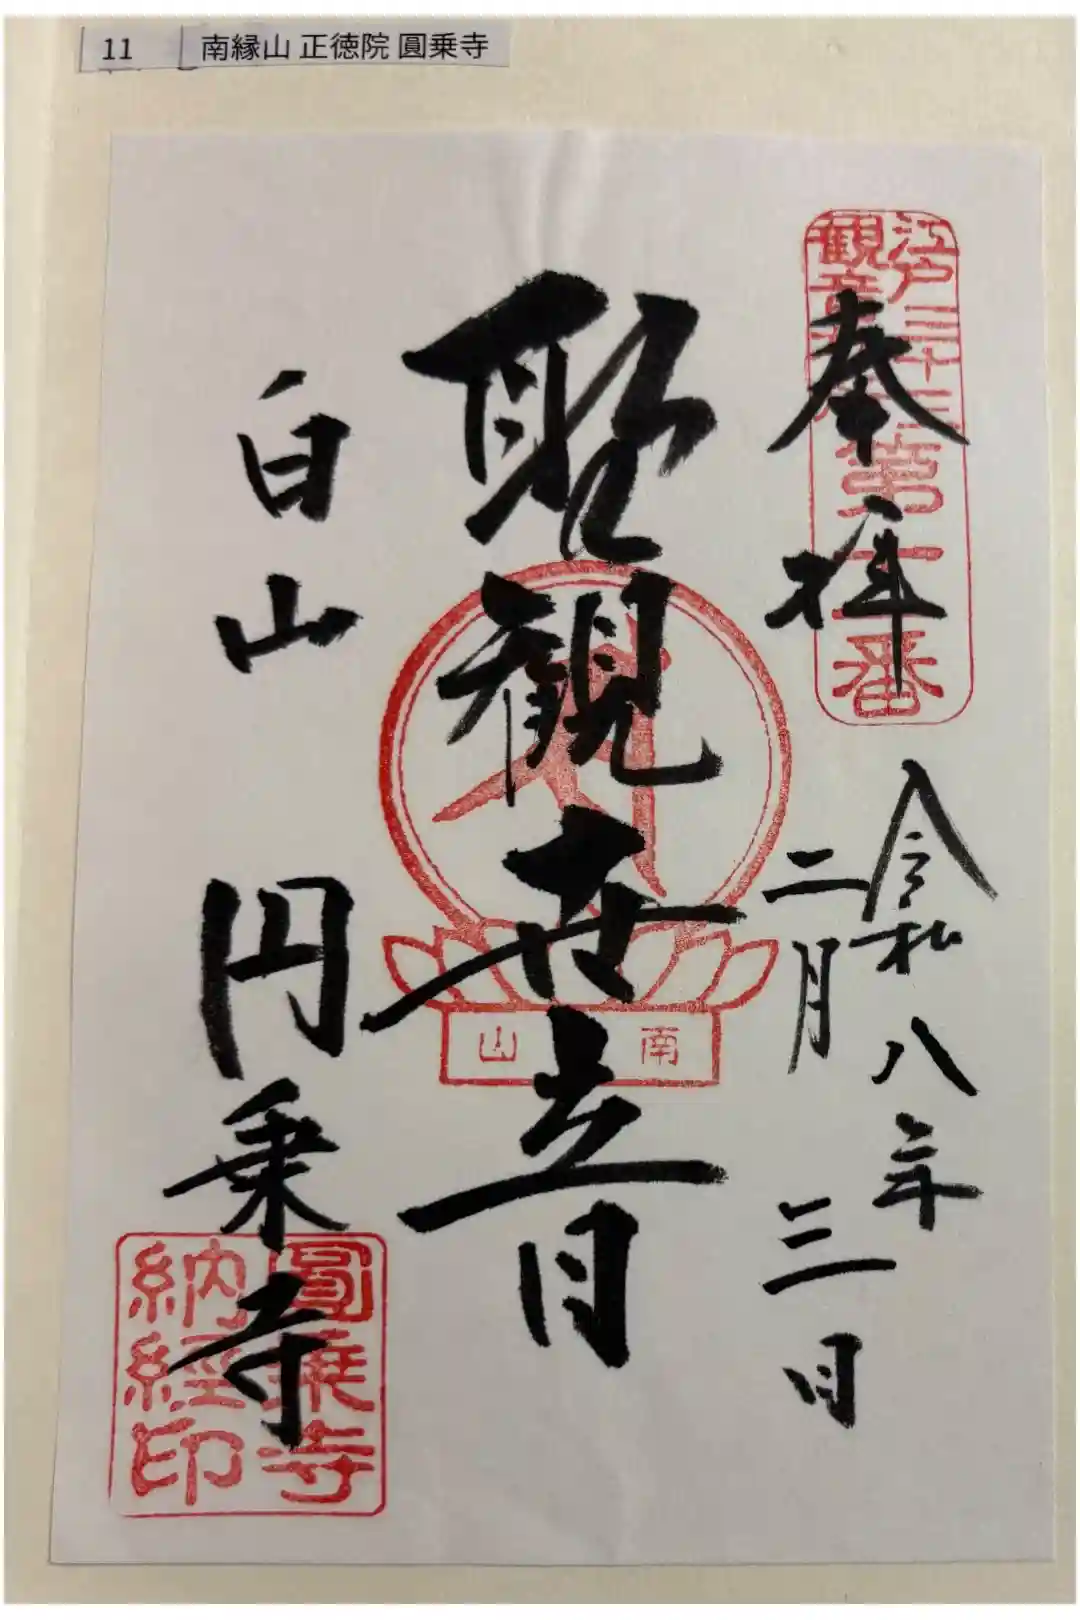 11 南縁山 正徳院 圓乗寺
江戸三十三
観音札所
第十一番
奉拝
令和八年
二月三日
聖観世音
南 山
白山 円乗寺
圓乗寺
納経印